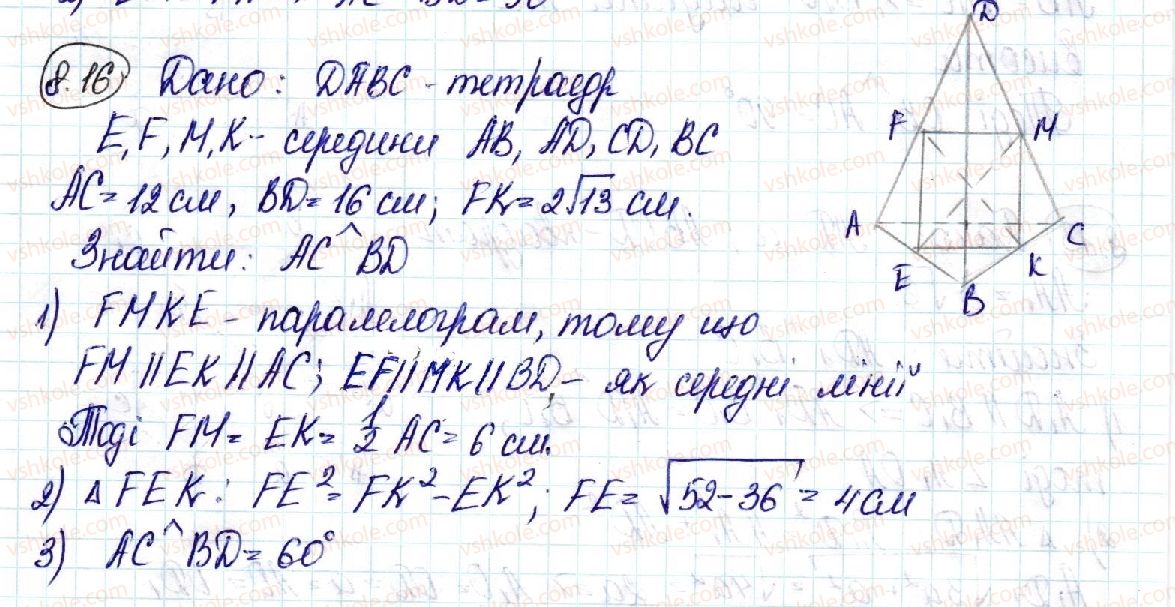 8.16 Дано: DABC - тетраедр
E, F, M, K - середини AB, AD, CD, BC
AC = 12 см, BD = 16 см; FK = 2√13 см.
Знайти: AC^BD
1) FMKE - паралелограм, тому що
FM || EK || AC; EF || MK || BD, - як середні лінії
Тоді FM = EK = 1/2 AC = 6 см.
2) △FEK: FE² = FK² - EK²; FE = √52-36 = 4 см
3) AC^BD = 60°
D
F
M
A
C
E
K
B
vshkole.com